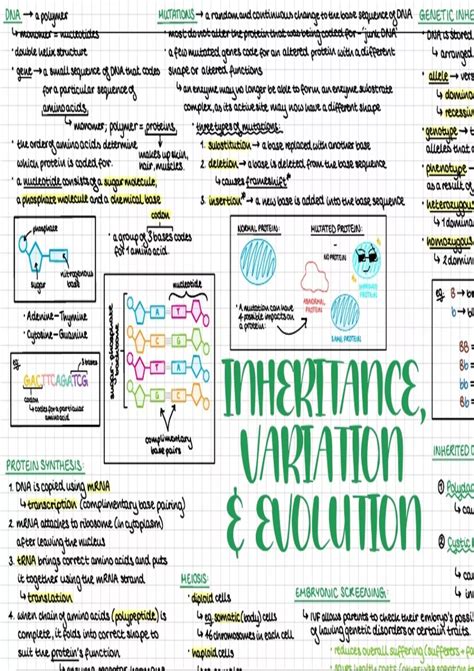 DNA → a polymer
↳ monomer = nucleotides
· double helix structure
· gene → a small sequence of DNA that codes
for a particular sequence of
amino acids.
↳ monomer; polymer = proteins.
↳ makes up skin,
hair, muscles.
· the order of amino acids determine
which protein is coded for.
· a nucleotide consists of a sugar molecule,
a phosphate molecule and a chemical base
codon
· a group of 3 bases codes
for 1 amino acid
phosphate
sugar
nitrogenous
base
· Adenine - Thymine
· Cytosine - Guanine
3 bases
GACTTCAGATCG
codon
↳ codes for a particular
amino acid
nucleotide
sugar-phosphate
backbone
A T
T A
G C
C
complimentary
base pairs
MUTATIONS → a random and continuous change to the base sequence of DNA
· most do not alter the protein that was being coded for - 'junk DNA'
· a few mutated genes code for an altered protein with a different
shape or altered functions
↳ an enzyme may no longer be able to form an enzyme substrate
complex, as its active site may now have a different shape
· three types of mutations:
1. substitution → a base replaced with another base
2. deletion → a base is deleted from the base sequence
↳ causes frameshift*
3. insertion* → a new base is added into the base sequence
NORMAL PROTEIN:
MUTATED PROTEIN:
-
NO PROTEIN
ABNORMAL
PROTEIN
IMPROVED
PROTEIN
SAME PROTEIN
· A mutation can have
4 possible impacts on
a protein:
GENETIC INHE
· DNA is stored
↳ arranged
· allele → vers
↳ dominan
↳ recessiv
· genotype → t
alleles that
· phenotype →
as a result of
· heterozygous
↳ 1 domina
· homozygous
↳ 2 domin
eg:
B
b
BB
Bb
bb
INHERITANCE,
VARIATION
& EVOLUTION
INHERITED D
① Polydac
↳ cau
② Cystic
↳ cau
↳ in
PROTEIN SYNTHESIS:
1. DNA is copied, using mRNA
↳ transcription (complimentary base pairing)
2. mRNA attaches to ribosome (in cytoplasm)
after leaving the nucleus
3. tRNA brings correct amino acids and puts
it together using the mRNA strand
↳ translation
4. when chain of amino acids (polypeptide) is
complete, it folds into correct shape to
suit the protein's function
MEIOSIS:
· diploid cells
↳ eg. somatic (body) cells
↳ 46 chromosomes in each cell
· haploid cells
EMBRYONIC SCREENING:
↳ IVF allows parents to check their embryo's possi
of having genetic disorders or certain traits
· reduces overall suffering